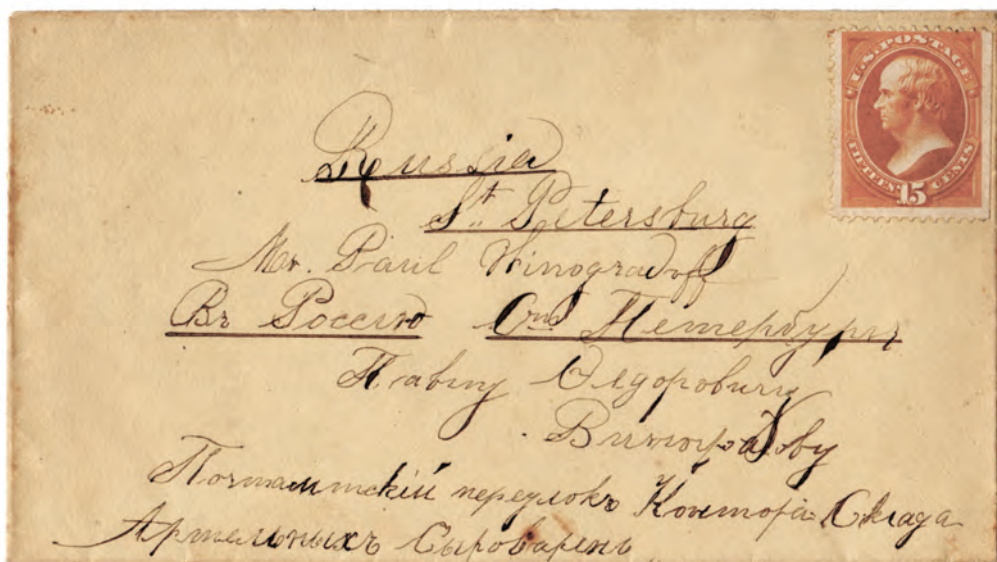 U.S. POSTAGE
FIFTEEN 15 CENTS
Russia
St. Petersburg
Mr. Paul Winogradoff
Въ Россію Снт Петербургъ
Павлу Ѳедоровичу
Виноградову
Почтамтскій переулокъ Контора Склада
Артельныхъ Сыроваренъ